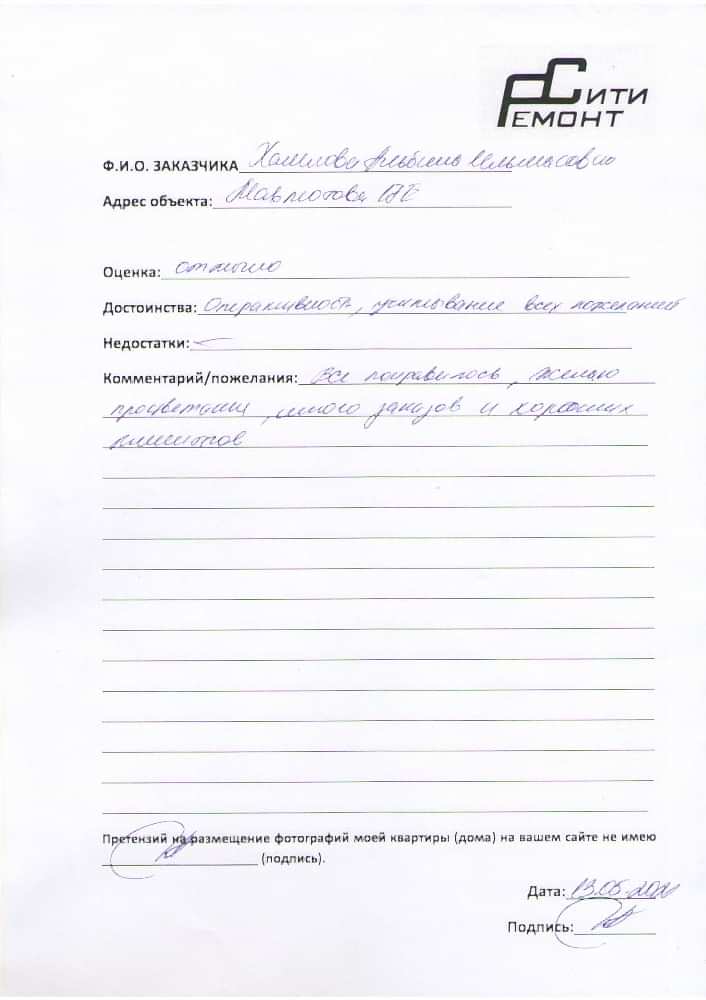 СИТИ
РЕМОНТ
Ф.И.О. ЗАКАЗЧИКА
Адрес объекта: Мавлютова
Оценка: отлично
Достоинства: Оперативность, учитывание всех пожеланий
Недостатки: –
Комментарий/пожелания: Все понравилось, желаю
процветания, много заказов и хороших
клиентов
Претензий на размещение фотографий моей квартиры (дома) на вашем сайте не имею
(подпись).
Дата:
Подпись: